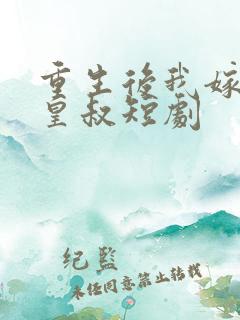 重生後我嫁
皇叔短劇
紀監
未经同意禁止转载